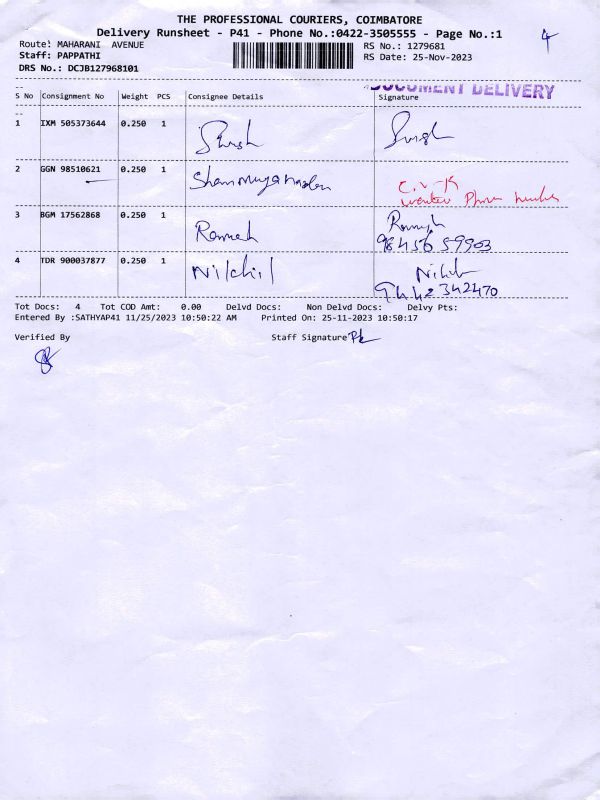 THE PROFESSIONAL COURIERS, COIMBATORE
Delivery Runsheet - P41 - Phone No.:0422-3505555 - Page No.:1
4
Route: MAHARANI AVENUE
RS No.: 1279681
Staff: PAPPATHI
RS Date: 25-Nov-2023
DRS No.: DCJB127968101
DOCUMENT DELIVERY
S No Consignment No Weight PCS Consignee Details Signature
1 IXM 505373644 0.250 1
2 GGN 98510621 0.250 1 Shanmuganadan
Phone number
3 BGM 17562868 0.250 1 Ramesh Ramesh
98456 59903
4 TDR 900037877 0.250 1 Nikhil Nikhil
9442342470
Tot Docs: 4 Tot COD Amt: 0.00 Delvd Docs: Non Delvd Docs: Delvy Pts:
Entered By :SATHYAP41 11/25/2023 10:50:22 AM Printed On: 25-11-2023 10:50:17
Verified By Staff Signature